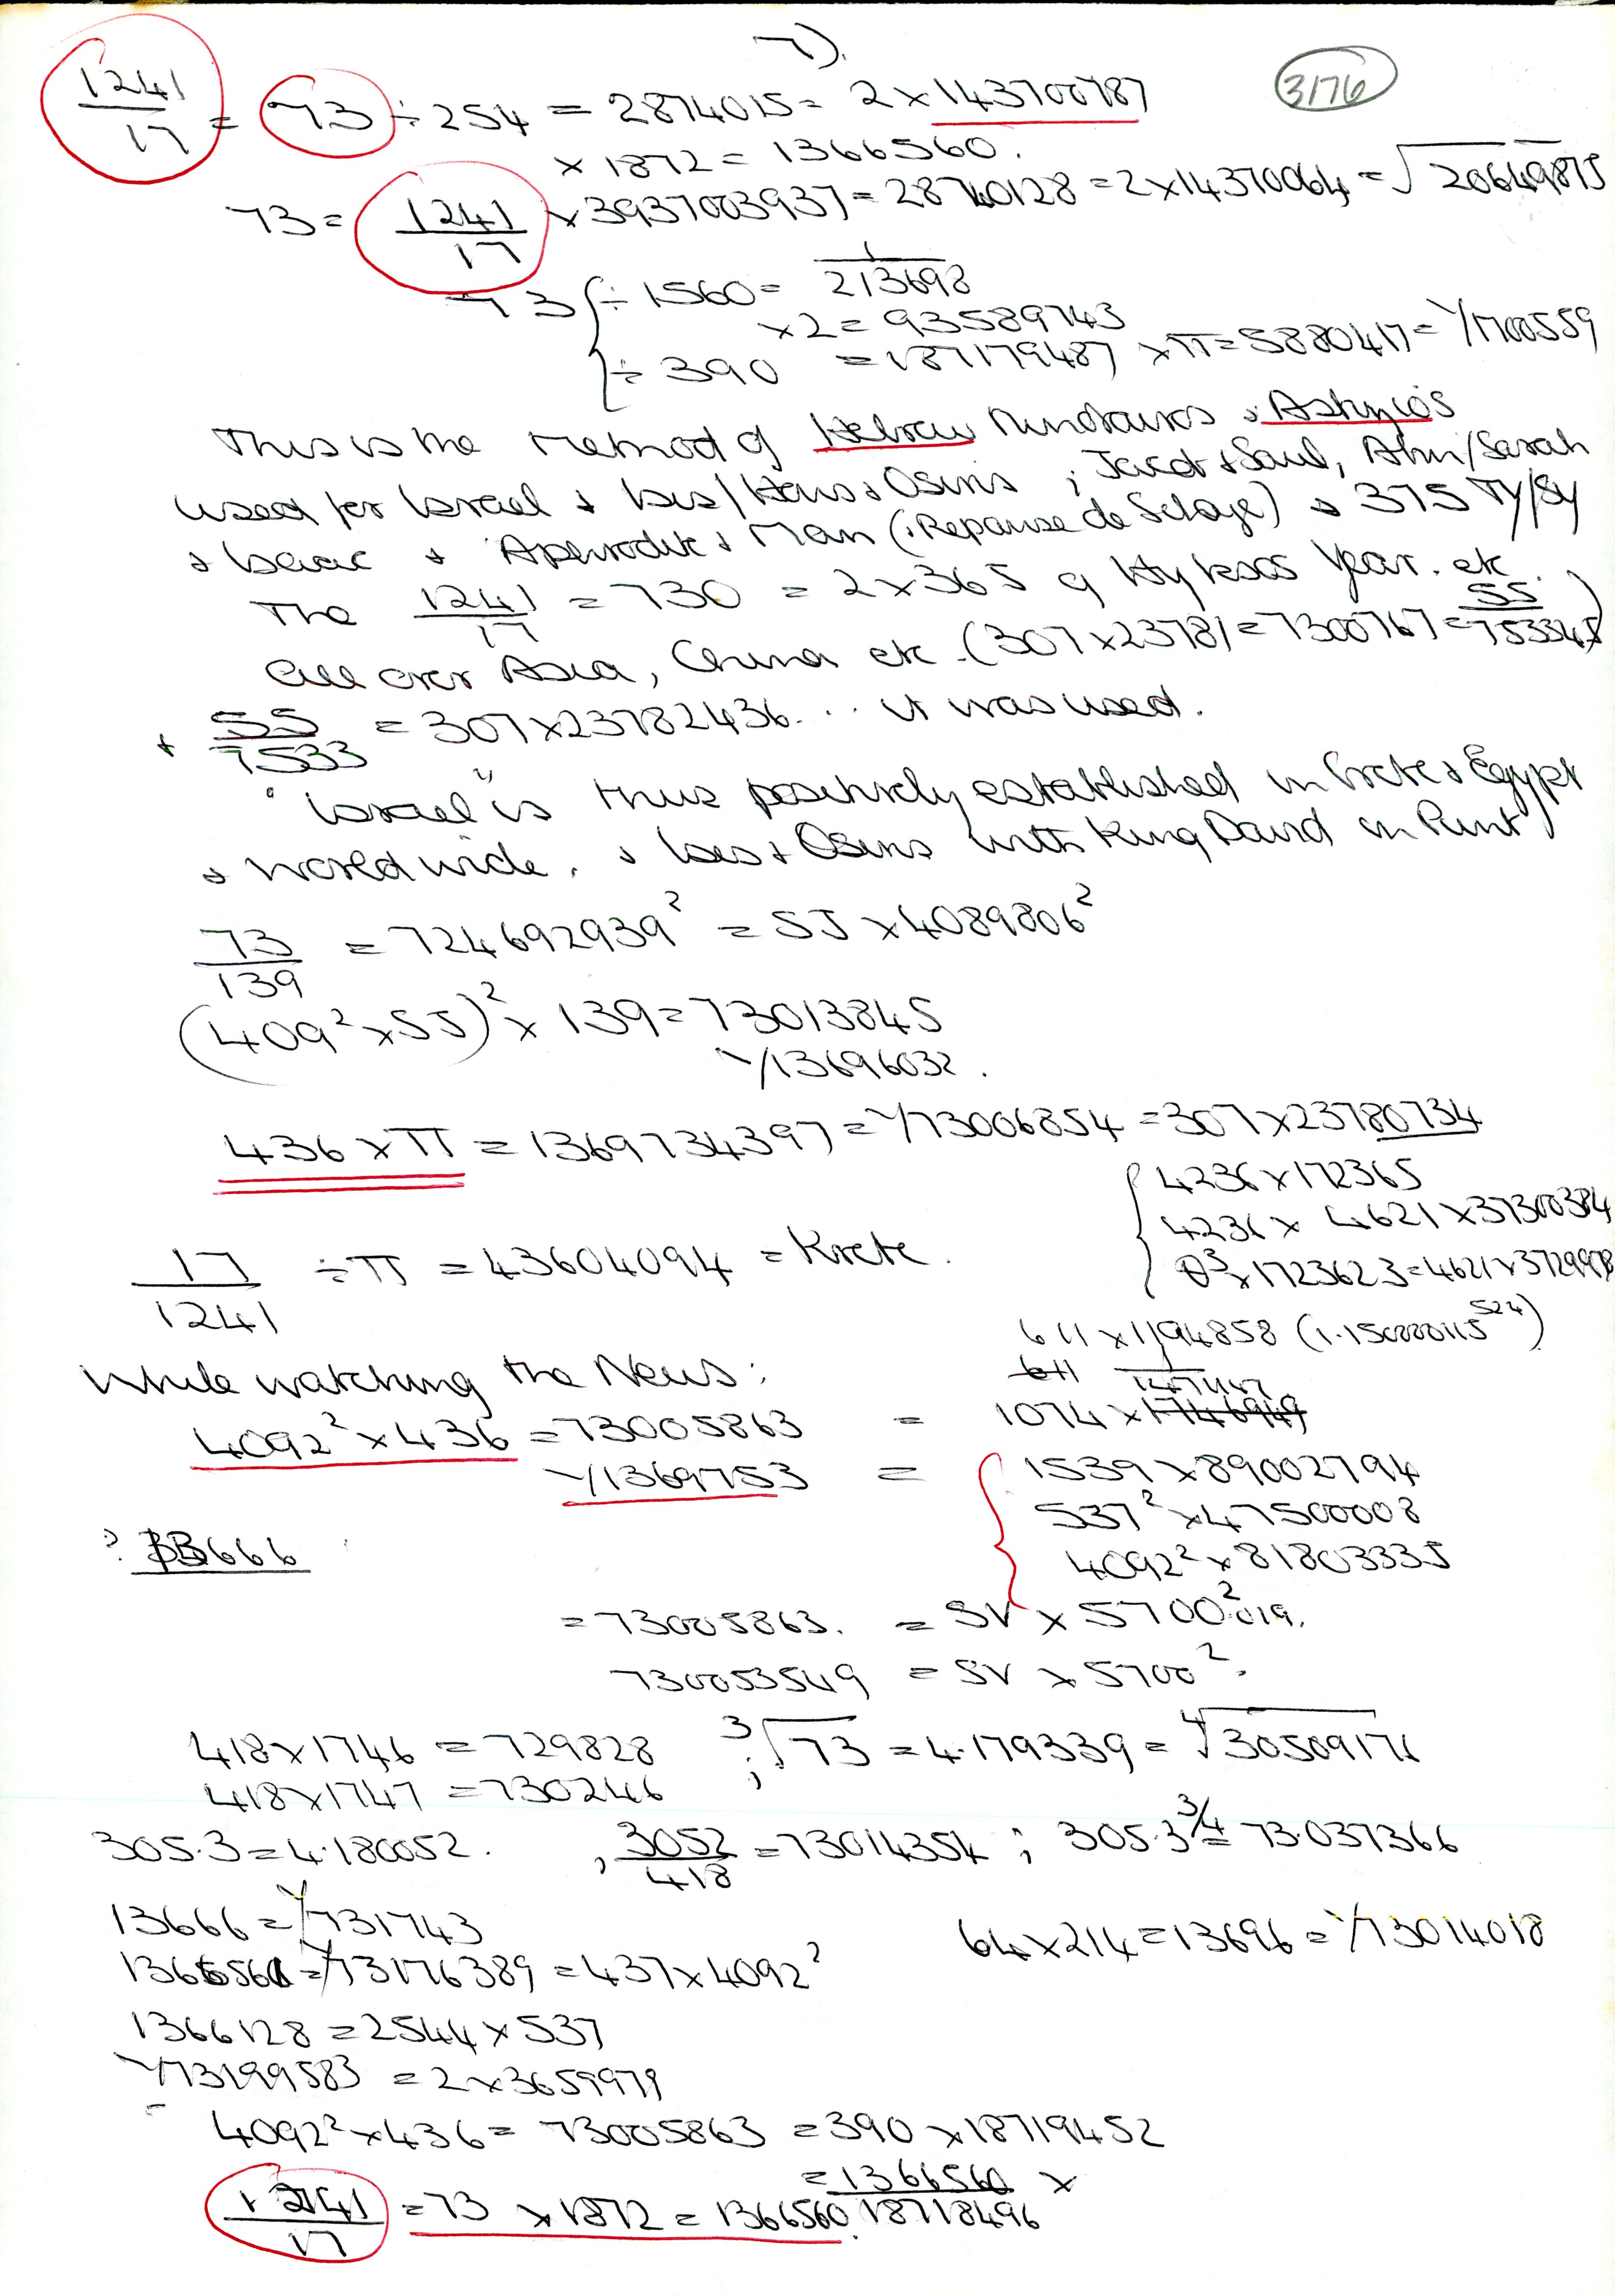 7).
3176
1241/17 = 73 ÷ 254 = 2874015 = 2 × 143700787
× 1872 = 1366560.
73 = 1241/17 × 3937003937 = 28740128 = 2 × 14370064 = √20649875
73 { ÷ 1560 = 1/213698
× 2 = 93589743
÷ 390 = 187179487 × π = 5880417 = 1/1700559
This is the method of Hebrew
used for Israel & Isis/Horus & Osiris ; Jacob & Saul, Abm/Sarah
& Isaac & Aphrodite & Man (: Repanse de Schoye) & 375 Ty/Sy
The 1241/17 = 730 = 2 × 365 of Hyksos Year. etc.
all over Asia, China etc. (307 × 23781 = 7300767 = 55/753345)
+ 55/7533 = 307 × 23782436... it was used.
"Israel" is thus positively established in Crete & Egypt
& worldwide. & Isis & Osiris with King David in Punt
73/139 = 724692939² = 55 × 4089806²
(409² × 55)² × 139 = 73013845
1/13696032.
436 × π = 1369734397 = 1/73006854 = 307 × 23780734
{ 4236 × 172365
4236 × 4621 × 37300384
θ³ × 1723623 = 4621 × 3729998
17/1241 ÷ π = 43604094 = Krete.
611 × 1194858 (1.150000115 524)
While watching the News:
4092² × 436 = 73005863 = 1074 × 1746949
1/1369753 = { 1539 × 89002794
537² × 47500008
4092² × 81803335
? 13666
= 73005863. = SV × 5700.019²
730053549 = SV × 5700².
418 × 1746 = 729828 ; ³√73 = 4.179339 = ⁴√30509176
418 × 1747 = 730246
305.3 = 4.180052. , 3052/418 = 73014354 ; 305.3 ¾ = 73.037366
13666 = 1/731743
64 × 214 = 13696 = 1/73014018
1366560 = 1/73176389 = 437 × 4092²
1366128 = 2544 × 537
1/73199583 = 2 × 3659979
4092² × 436 = 73005863 = 390 × 18719452
= 1366560 ×
1241/17 = 73 × 1872 = 1366560. 18718496